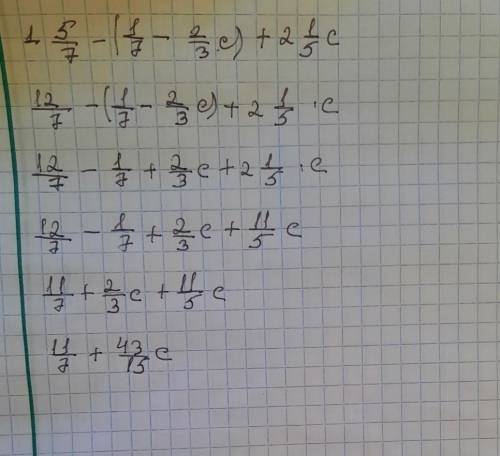 1 5/7 - (1/7 - 2/3 c) + 2 1/5 c
12/7 - (1/7 - 2/3 c) + 2 1/5 · c
12/7 - 1/7 + 2/3 c + 2 1/5 · c
12/7 - 1/7 + 2/3 c + 11/5 c
11/7 + 2/3 c + 11/5 c
11/7 + 43/15 c